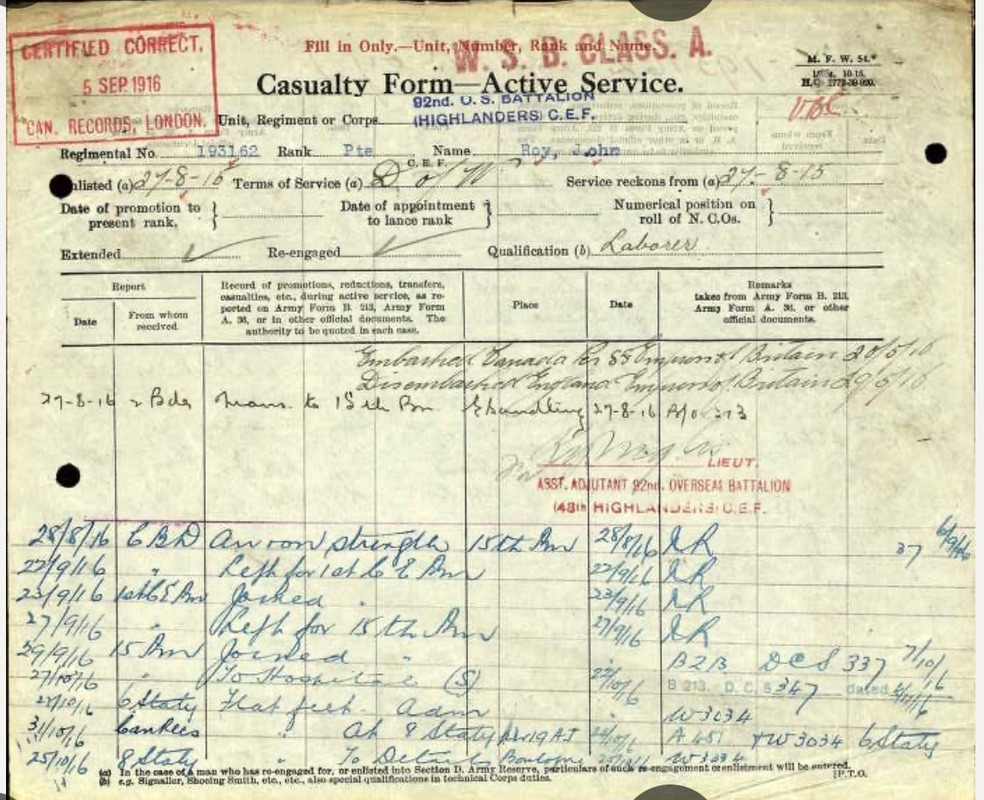 CERTIFIED CORRECT.
5 SEP. 1916
CAN. RECORDS, LONDON.
Fill in Only.—Unit, Number, Rank and Name.
W. S. B. CLASS. A.
M. F. W. 54.
Casualty Form—Active Service.
Unit, Regiment or Corps
92nd. O. S. BATTALION
(HIGHLANDERS) C.E.F.
Regimental No. 193162 Rank Pte Name Roy, John
C.E.F.
Enlisted (a) 27-8-15 Terms of Service (a) D of W Service reckons from (a) 27-8-15
Date of promotion to present rank. } Date of appointment to lance rank } Numerical position on roll of N.C.Os. }
Extended Re-engaged Qualification (b) Laborer.
Report
Date
From whom received
Record of promotions, reductions, transfers, casualties, etc., during active service, as reported on Army Form B. 213, Army Form A. 36, or in other official documents. The authority to be quoted in each case.
Place
Date
Remarks
taken from Army Form B. 213, Army Form A. 36, or other official documents.
Embarked Canada Per SS Empress of Britain 20/5/16
Disembarked England Empress of Britain 29/5/16
27-8-16 2 Bde Trans. to 15th Bn 27-8-16
LIEUT.
ASST. ADJUTANT 92nd. OVERSEAS BATTALION
(48th HIGHLANDERS) C.E.F.
28/8/16 CBD Arr on strength 15th Bn 28/8/16 NR 37
22/9/16 " Left for 1st C E Bn 22/9/16 NR
23/9/16 1st C E Bn Joined " 23/9/16 NR
27/9/16 " Left for 15th Bn 27/9/16 NR
29/9/16 15 Bn Joined " B213 DCS 337 7/10/16
27/10/16 " To Hospital (S) B 213. D.C.S 347 dated
6 Staty Flat feet Adm W3034
31/10/16 " At 8 Staty A 451 + W3034 6 Staty
25/10/16 8 Staty " To Details Boulogne W3034
(a) In the case of a man who has re-engaged for, or enlisted into Section D. Army Reserve, particulars of such re-engagement or enlistment will be entered.
(b) e.g. Signaller, Shoeing Smith, etc., etc., also special qualifications in technical Corps duties. [P.T.O.